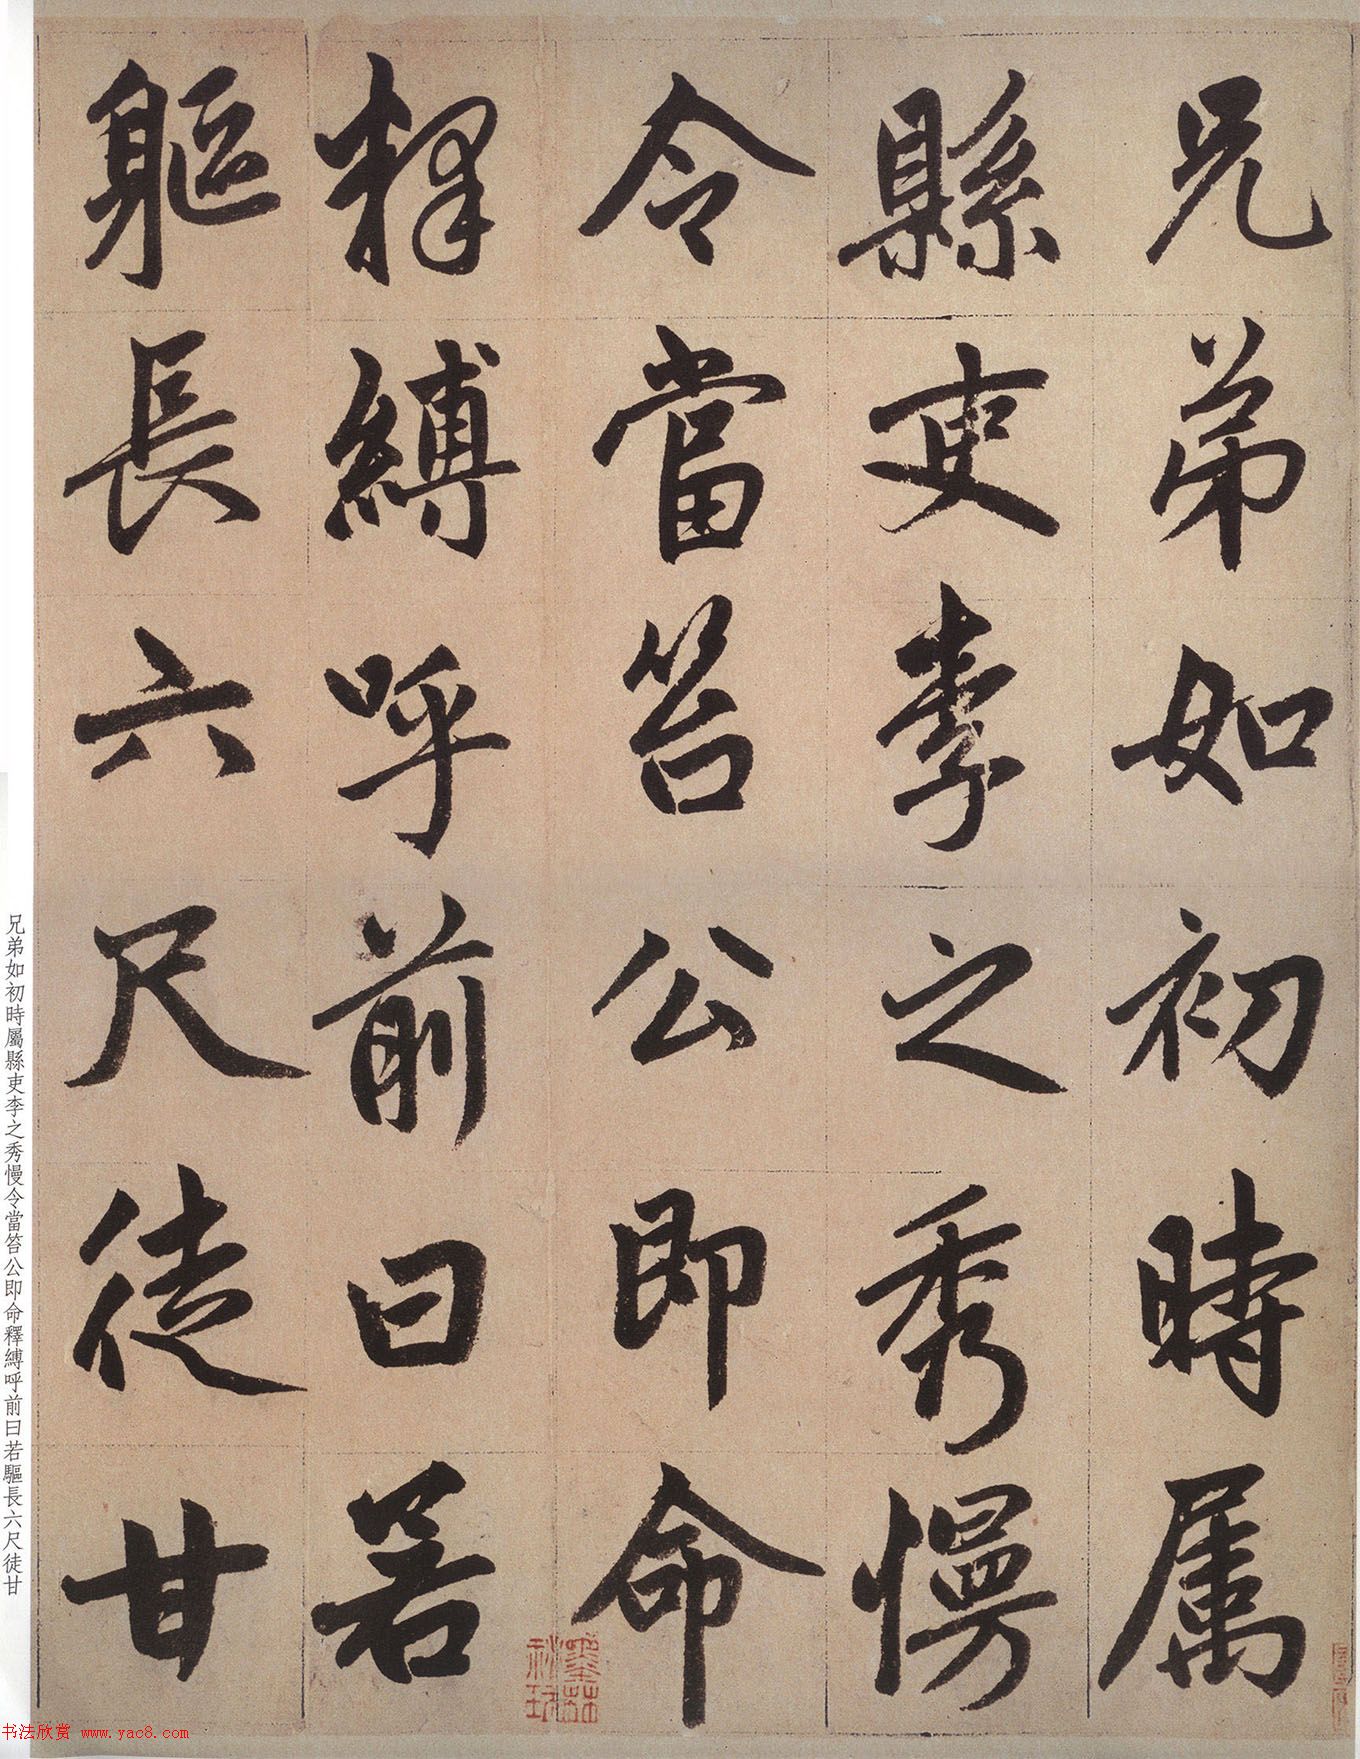 兄弟如初時属
縣吏李之秀慢
令當笞公即命
釋縛呼前曰若
軀長六尺徒甘
兄弟如初時屬縣吏李之秀慢令當笞公即命釋縛呼前曰若驅長六尺徒甘
书法欣赏 www.yac8.com